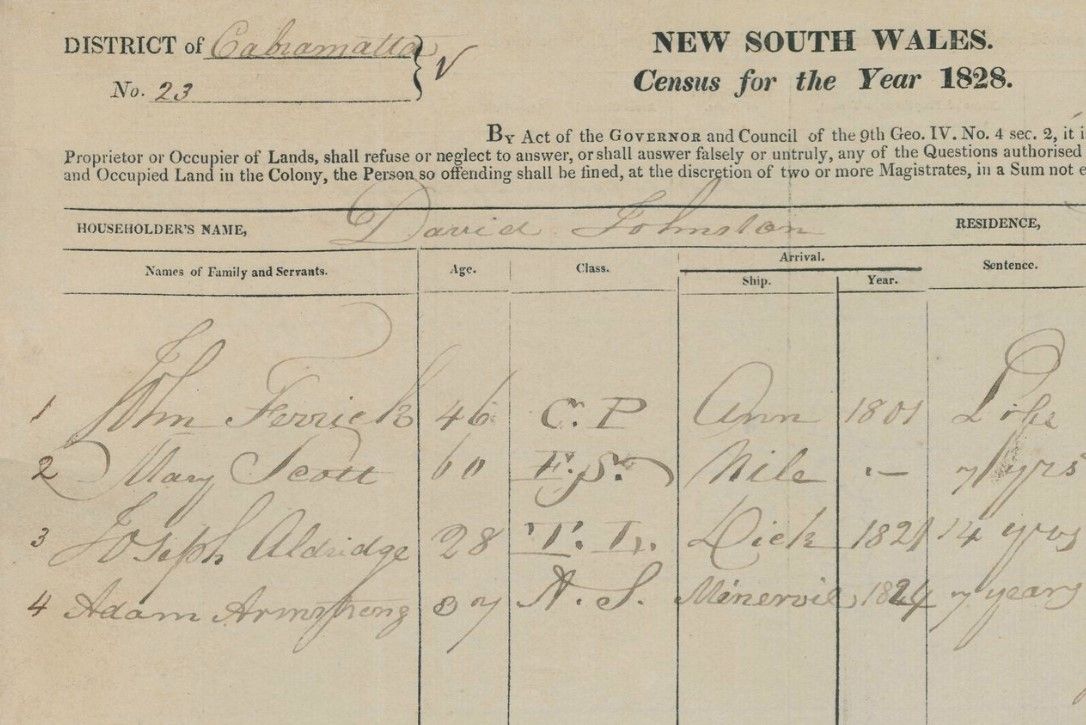 DISTRICT of Cabramatta
No. 23
NEW SOUTH WALES.
Census for the Year 1828.
BY Act of the GOVERNOR and Council of the 9th Geo. IV. No. 4 sec. 2, it i
Proprietor or Occupier of Lands, shall refuse or neglect to answer, or shall answer falsely or untruly, any of the Questions authorised
and Occupied Land in the Colony, the Person so offending shall be fined, at the discretion of two or more Magistrates, in a Sum not e
HOUSEHOLDER'S NAME, David Johnston RESIDENCE,
Names of Family and Servants. Age. Class. Arrival. Sentence.
Ship. Year.
1 John Ferrick 46 C. P Ann 1801 Life
2 Mary Scott 60 F. S. Nile — 7 yrs
3 Joseph Aldridge 28 T. L. Dick 1821 14 yrs
4 Adam Armstrong 37 A. S. 1824 7 years